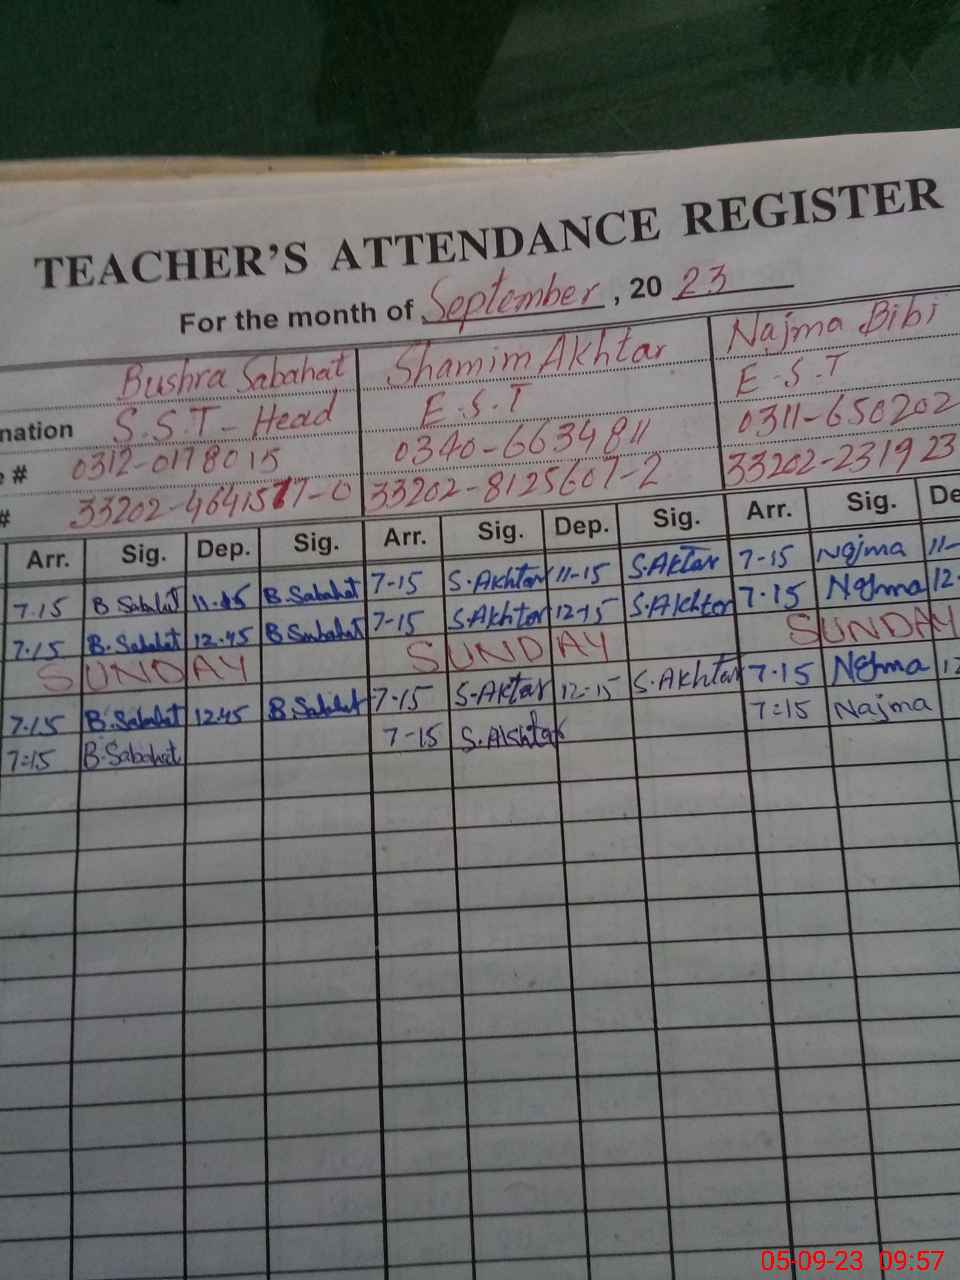 TEACHER'S ATTENDANCE REGISTER
For the month of September, 20 23
Bushra Sabahat Shamim Akhtar Najma Bibi
nation S.S.T- Head E.S.T E.S.T
# 0312-0178015 0340-6634811 0311-650202
# 33202-4641577-0 33202-8125607-2 33202-231923
Arr. Sig. Dep. Sig. Arr. Sig. Dep. Sig. Arr. Sig. De
7.15 B Sabahat 11.15 B.Sabahat 7-15 S.Akhtar 11-15 S.Aktar 7-15 Najma 11-
7.15 B.Sabahat 12.45 B Sabahat 7-15 S.Akhtar 12-15 S.Akhtar 7.15 Najma 12.
SUNDAY SUNDAY SUNDAY
7.15 B.Sabahat 12.45 B.Sabahat 7-15 S-Aktar 12-15 S.Akhtar 7.15 Najma 12
7:15 B.Sabahat 7-15 S.Akhtar 7:15 Najma
05-09-23 09:57